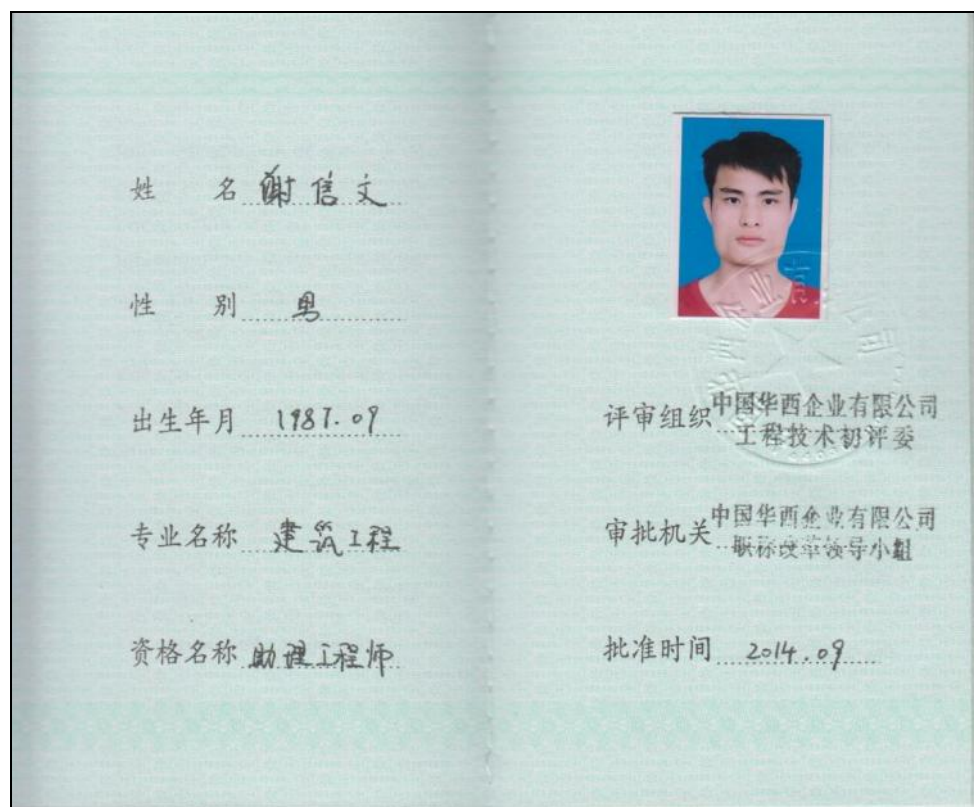 姓 名 谢信文
性 别 男
出生年月 1987.09
专业名称 建筑工程
资格名称 助理工程师
评审组织 中国华西企业有限公司
工程技术初评委
审批机关 中国华西企业有限公司
职称改革领导小组
批准时间 2014.09